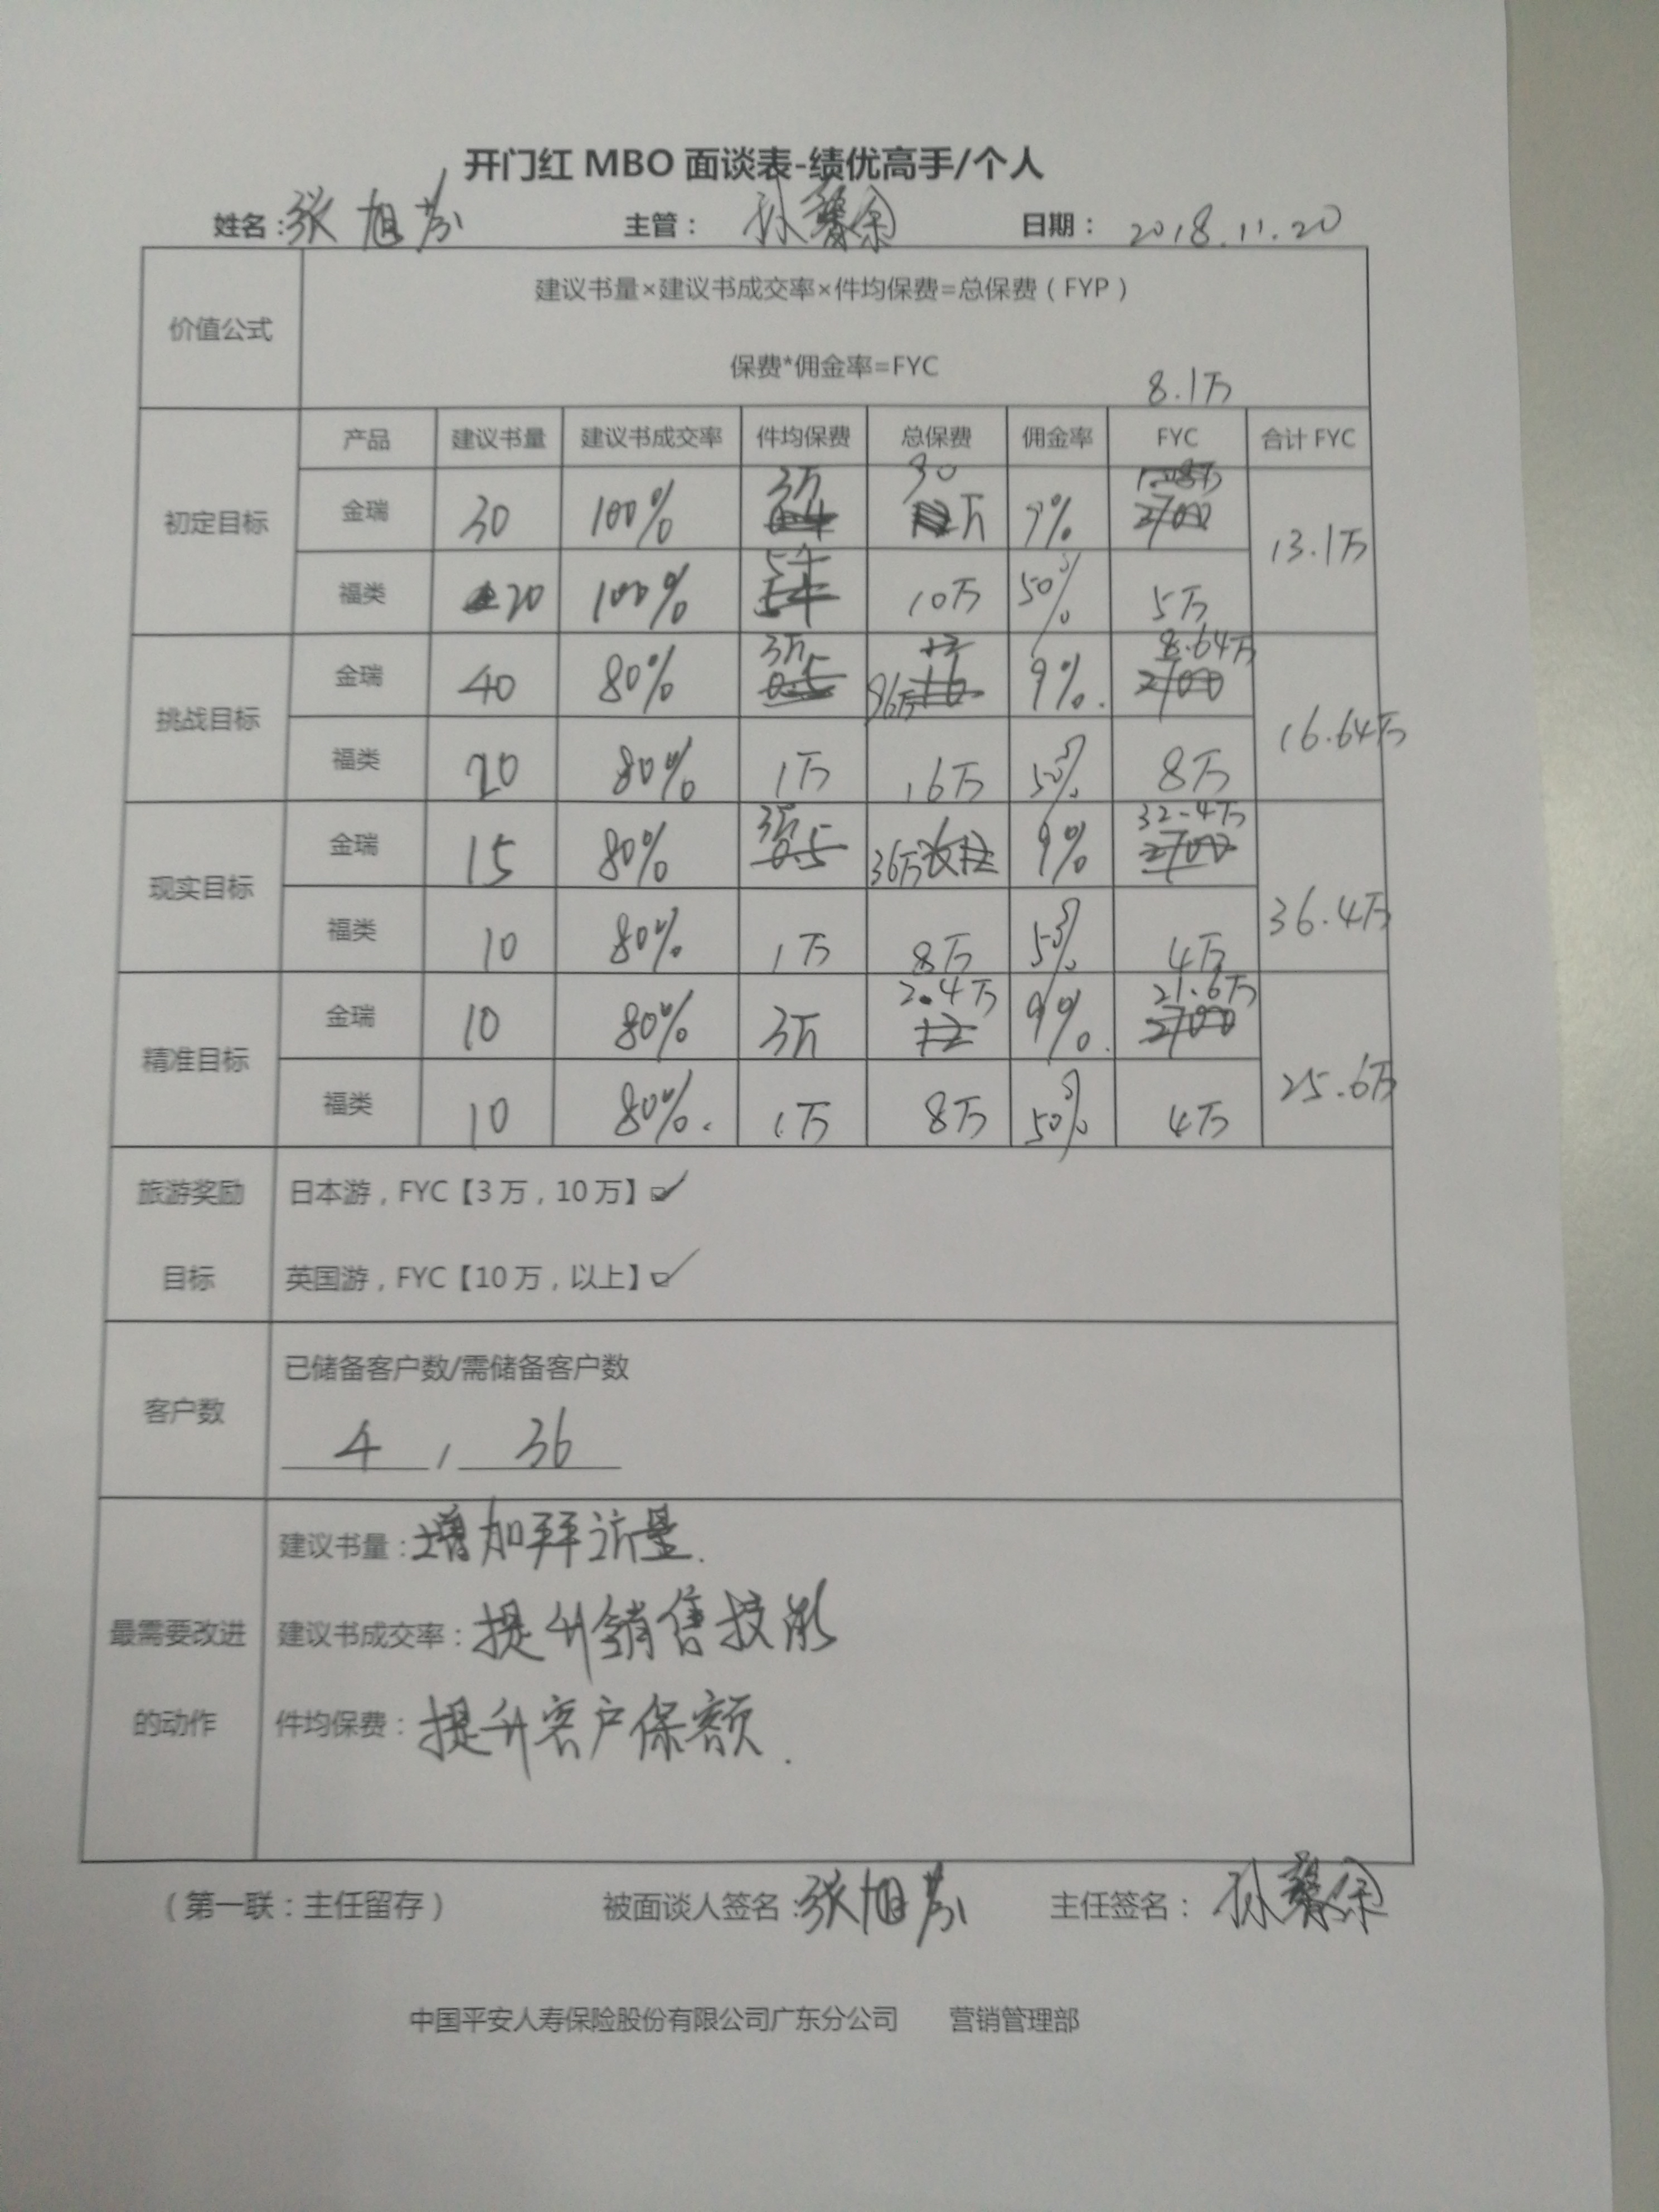 开门红 MBO 面谈表-绩优高手/个人
姓名：张旭芬 主管：孙 日期：2018.11.20
价值公式
建议书量×建议书成交率×件均保费=总保费（FYP）
保费*佣金率=FYC
8.1万
产品 建议书量 建议书成交率 件均保费 总保费 佣金率 FYC 合计 FYC
初定目标
金瑞 30 100% 3万 90万 9%
福类 20 100% 5千 10万 50% 5万
13.1万
挑战目标
金瑞 40 80% 3万 96万 9% 8.64万
福类 20 80% 1万 16万 50% 8万
16.64万
现实目标
金瑞 15 80% 3万 36万 9% 32.4万
福类 10 80% 1万 8万 50% 4万
36.4万
精准目标
金瑞 10 80% 3万 2.4万 9% 21.6万
福类 10 80% 1万 8万 50% 4万
25.6万
旅游奖励
目标
日本游，FYC【3万，10万】☑
英国游，FYC【10万，以上】☑
客户数
已储备客户数/需储备客户数
4 / 36
最需要改进
的动作
建议书量：增加拜访量.
建议书成交率：提升销售技能
件均保费：提升客户保额.
（第一联：主任留存） 被面谈人签名：张旭芬 主任签名：孙
中国平安人寿保险股份有限公司广东分公司 营销管理部